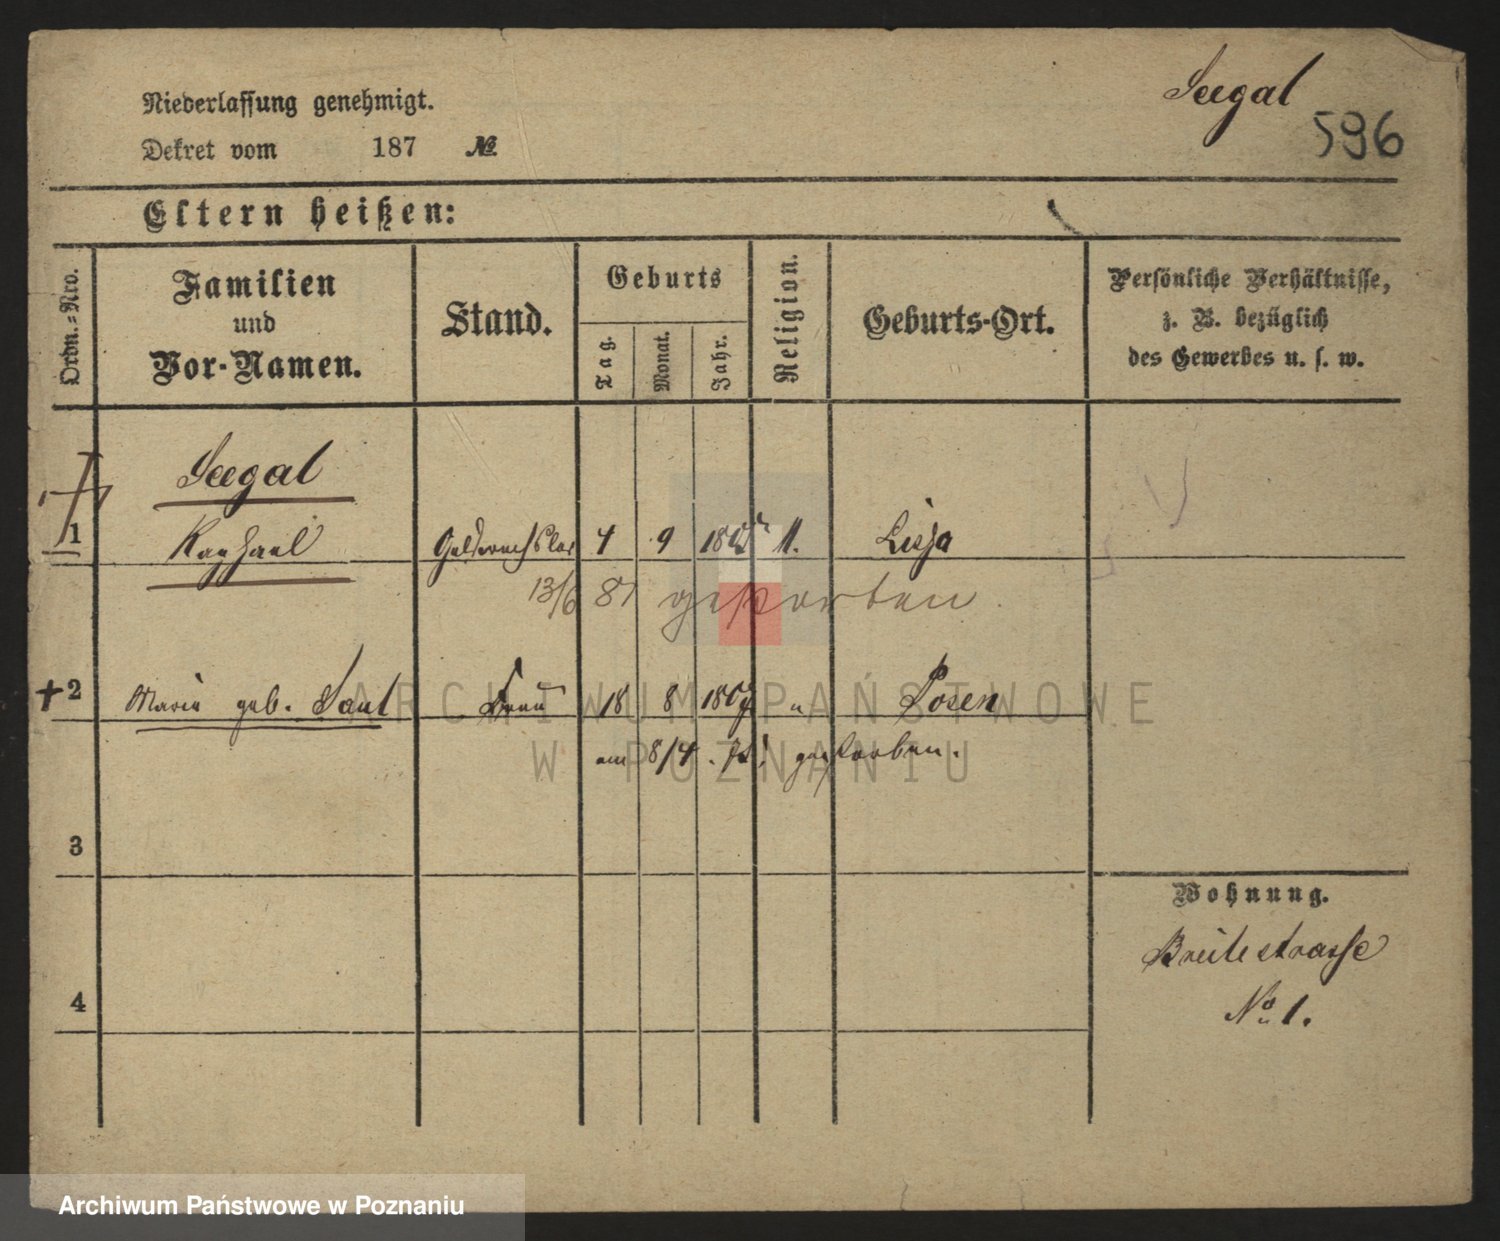 Seegal
596
Niederlassung genehmigt.
Dekret vom 187 №
Eltern heißen:
Ordn.-Nro.
Familien und Vor-Namen.
Stand.
Geburts
Tag.
Monat.
Jahr.
Religion.
Geburts-Ort.
Persönliche Verhältnisse,
z. B. bezüglich
des Gewerbes u. s. w.
Seegal
1 Raphael Geldwechsler 4 9 M. Lissa
13/6 81 gestorben
+2 Marie geb. Saul Frau 18 8 1807 " Posen
am 8/4 gestorben.
3
4
Wohnung.
Breitestrasse
No 1.
ARCHIWUM PAŃSTWOWE
W POZNANIU
Archiwum Państwowe w Poznaniu